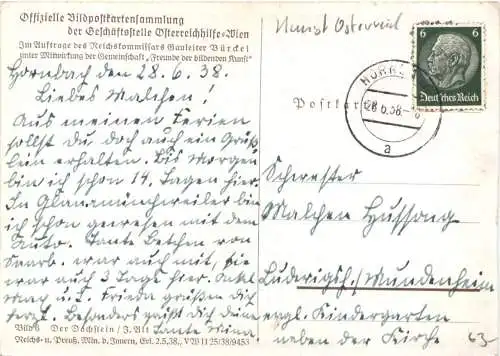 Offizielle Bildpostkartensammlung
der Geschäftsstelle Österreichhilfe-Wien
Im Auftrage des Reichskommissars Gauleiter Bürckel
unter Mitwirkung der Gemeinschaft „Freunde der bildenden Kunst"
Hornbach den 28.6.38.
Liebes Malchen!
Aus meinen Ferien
sollst Du doch auch ein Gruß
lein erhalten. Bis Morgen
bin ich schon 14 Tagen hier.
In Glanmünchweiler bin
ich schon gewesen mit dem
Auto. Tante Bethen von
Saarb. war auch mit, sie
war auch 3 Tage hier. Onkel
u. T. Frieda grüßen Dich
herzl. Besonders grüßt Dich Deine
Tante Mina
Bild 6 Der Dachstein / J. Alt
Reichs- u. Preuß. Min. d. Innern, Erl. 2.5.38, VW 1125/38/9453
Postkarte
28.6.38
a
6 6
Deutsches Reich
Schwester
Malchen Hussong
Ludwigsh./Mundenheim
evgl. Kindergarten
neben der Kirche
63